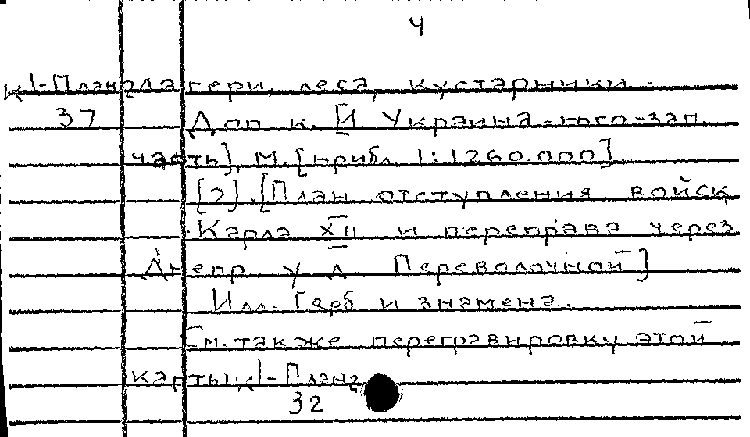 4
К1-План лагери, леса, кустарники.
37 Доп. к. [1 Украина - юго-зап.
часть], М. [прибл. 1:1260.000]
[2]. [План отступления войск
Карла XII и переправа через
Днепр у д. Переволочной]
Илл. Герб и знамена.
См. также перегравировку этой
карты: К1-План
32